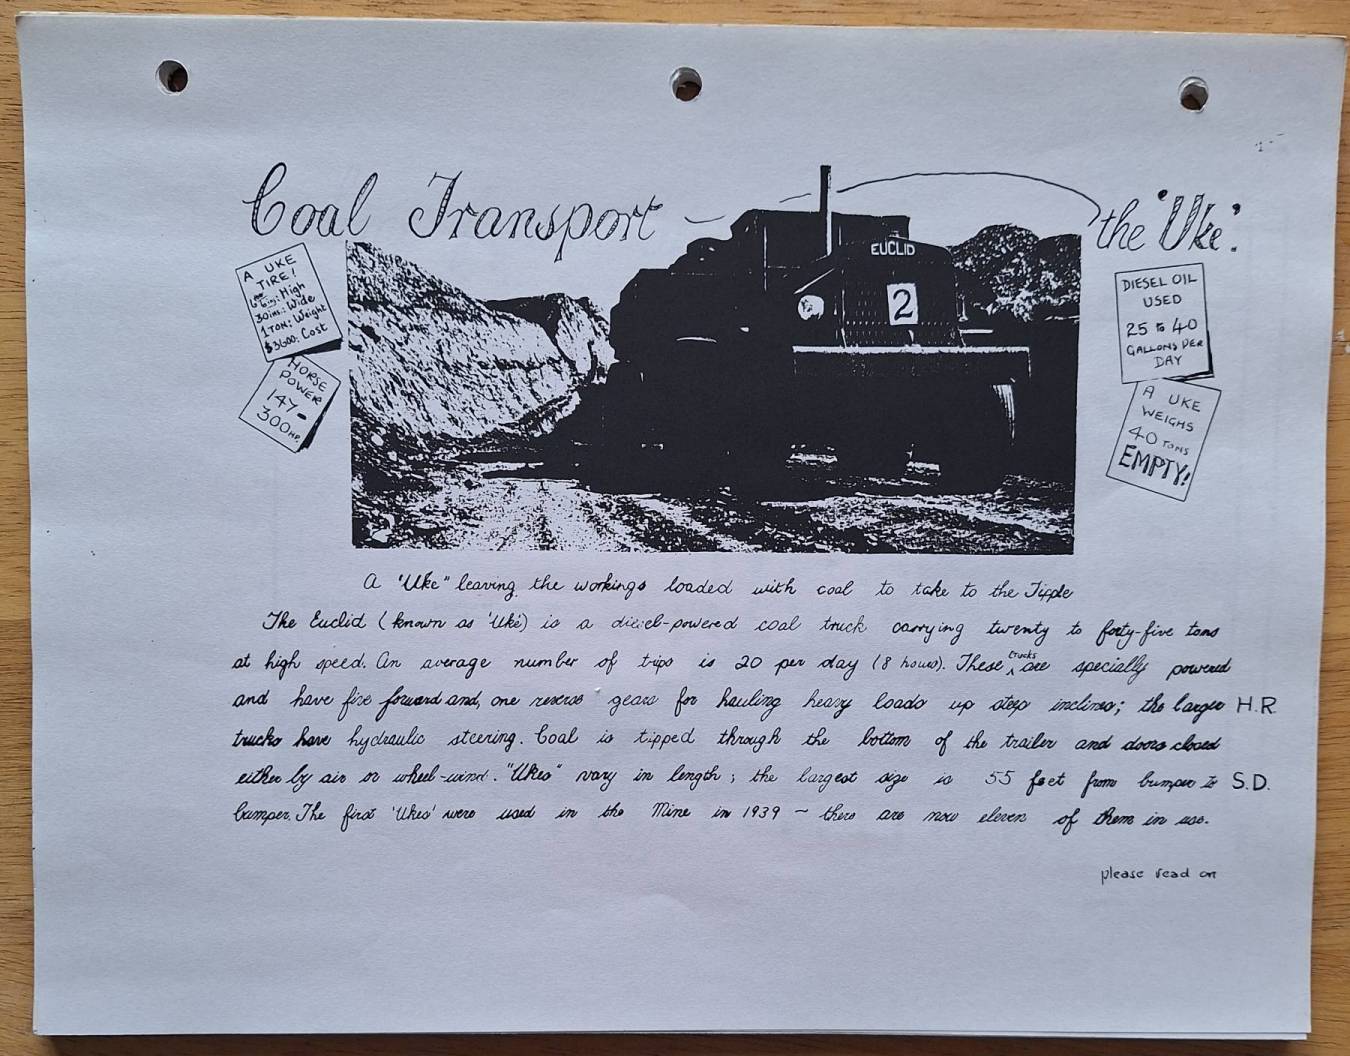 Coal Transport – the 'Uke'.
A UKE
TIRE!
6ins: High
30ins: Wide
1 TON: Weight
$3600: Cost
HORSE
POWER
147-
300 HP.
EUCLID
2
DIESEL OIL
USED
25 to 40
GALLONS PER
DAY
A UKE
WEIGHS
40 TONS
EMPTY!
A 'Uke" leaving the workings loaded with coal to take to the Tipple
The Euclid (known as 'Uke') is a diesel-powered coal truck carrying twenty to forty-five tons
at high speed. An average number of trips is 20 per day (8 hours). These trucks are specially powered
and have five forward and, one reverse gears for hauling heavy loads up steep inclines; the larger H.R.
trucks have hydraulic steering. Coal is tipped through the bottom of the trailer and doors closed
either by air or wheel-wind. "Ukes" vary in length; the largest size is 55 feet from bumper to S.D.
bumper. The first 'Ukes' were used in the Mine in 1939 ~ there are now eleven of them in use.
please read on